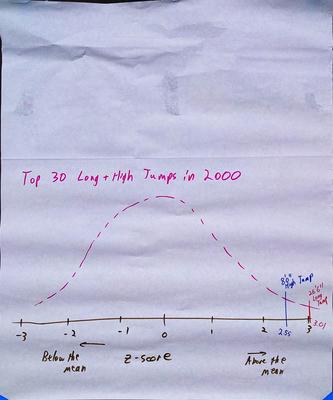 Top 30 Long + High Jumps in 2000
8'0" High Jump
Long Jump
-3 -2 -1 0 1 2 3
2.55
3.01
Below the mean
z-score
Above the mean